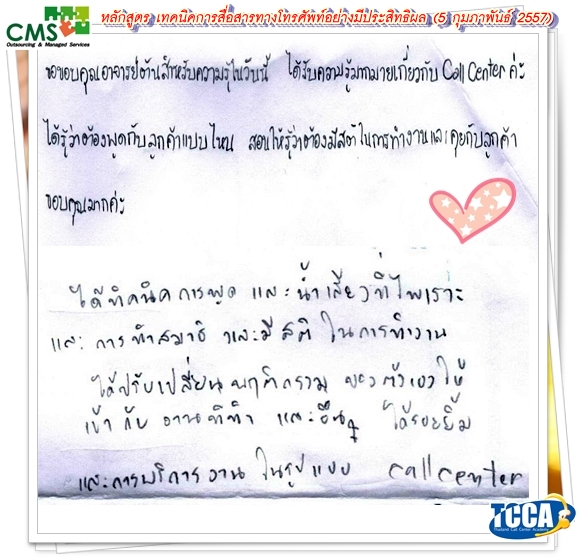 CMS
Outsourcing & Managed Services
หลักสูตร เทคนิคการสื่อสารทางโทรศัพท์อย่างมีประสิทธิผล (5 กุมภาพันธ์ 2557)
ขอขอบคุณอาจารย์ต้นสำหรับความรู้ในวันนี้ ได้รับความรู้มากมายเกี่ยวกับ Call Center ค่ะ
ได้รู้ว่าต้องพูดกับลูกค้าแบบไหน สอนให้รู้ว่าต้องมีสติในการทำงานและคุยกับลูกค้า
ขอบคุณมากค่ะ
ได้เทคนิค การพูด และน้ำเสียงที่ไพเราะ
และ การทำสมาธิ และมีสติ ในการทำงาน
ได้ปรับเปลี่ยนพฤติกรรม ของตัวเองให้
เข้ากับ งานที่ทำ และอื่นๆ ได้รอยยิ้ม
และการบริการงาน ในรูปแบบ call center
TCCA
Thailand Call Center Academy